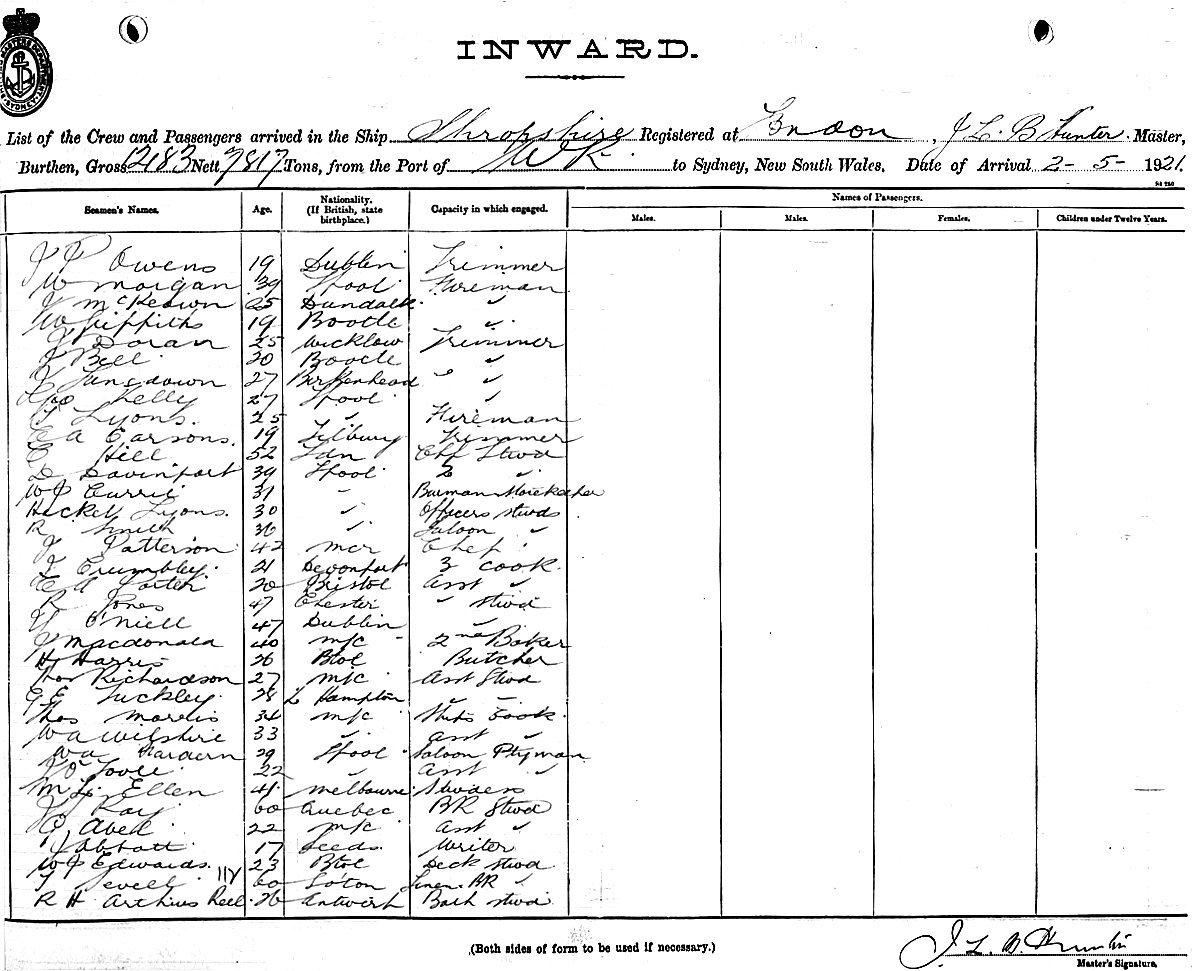 INWARD.
List of the Crew and Passengers arrived in the Ship Shropshire Registered at London, J L. B Hunter. Master,
Burthen, Gross Nett 7817 Tons, from the Port of U K. to Sydney, New South Wales. Date of Arrival 2-5-1921.
Seamen's Names. Age. Nationality. (If British, state birthplace.) Capacity in which engaged. Names of Passengers.
Males. Males. Females. Children under Twelve Years.
J P Owens 19 Dublin Trimmer
W Morgan 39 Lpool Fireman
J McKeown 25 Dundalk "
W Griffiths 19 Bootle "
J Doran 25 Wicklow Trimmer
J Bell 20 Bootle "
Lansdown 27 Birkenhead "
Geo Kelly 27 Lpool "
T Lyons. 25 " Fireman
E A Carsons. 19 Tilbury Trimmer
C Hill 52 Ldn Chf Stwd
D Davinport 39 Lpool 2 "
W J Currie 31 "
Lyons. 30 " Officers stwds
R Smith 36 " Saloon "
J Patterson 42 mcr Chef
J Crumbley. 21 Devonport 3 cook.
E A Porter 20 Bristol asst "
R Jones 47 Chester " stwd
O'Niell 47 Dublin "
J Macdonald 40 m/c 2nd Baker
H Harris 26 Btol Butcher
Thos Richardson 27 m/c asst Stwd
G E Tuckley. 28 Hampton "
Thos Morris 34 m/c Cook.
W A Wilshire 33 " asst "
W A Hardern 29 Lpool Saloon Ptyman
J O'Toole 22 " asst "
M L. Ellen 41 Melbourne Stwdess
J Ray 60 Quebec BR Stwd
C Abell 22 m/c asst "
Abbott 17 Leeds. Writer
W J Edwards. 23 Btol Deck stwd
T 60 So'ton Linen. BR "
R H Arthius 26 Antwerp Bath stwd
(Both sides of form to be used if necessary.)
J. L. B Hunter
Master's Signature.